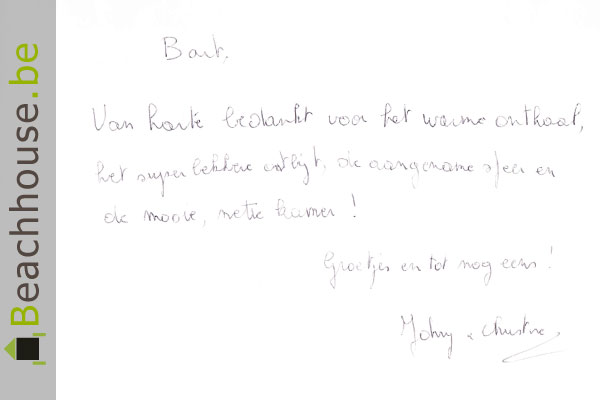 Beachhouse.be
Bart,
Van harte bedankt voor het warme onthaal,
het super lekkere ontbijt, de aangename sfeer en
de mooie, nette kamer!
Groetjes en tot nog eens!
Johny & Christine.